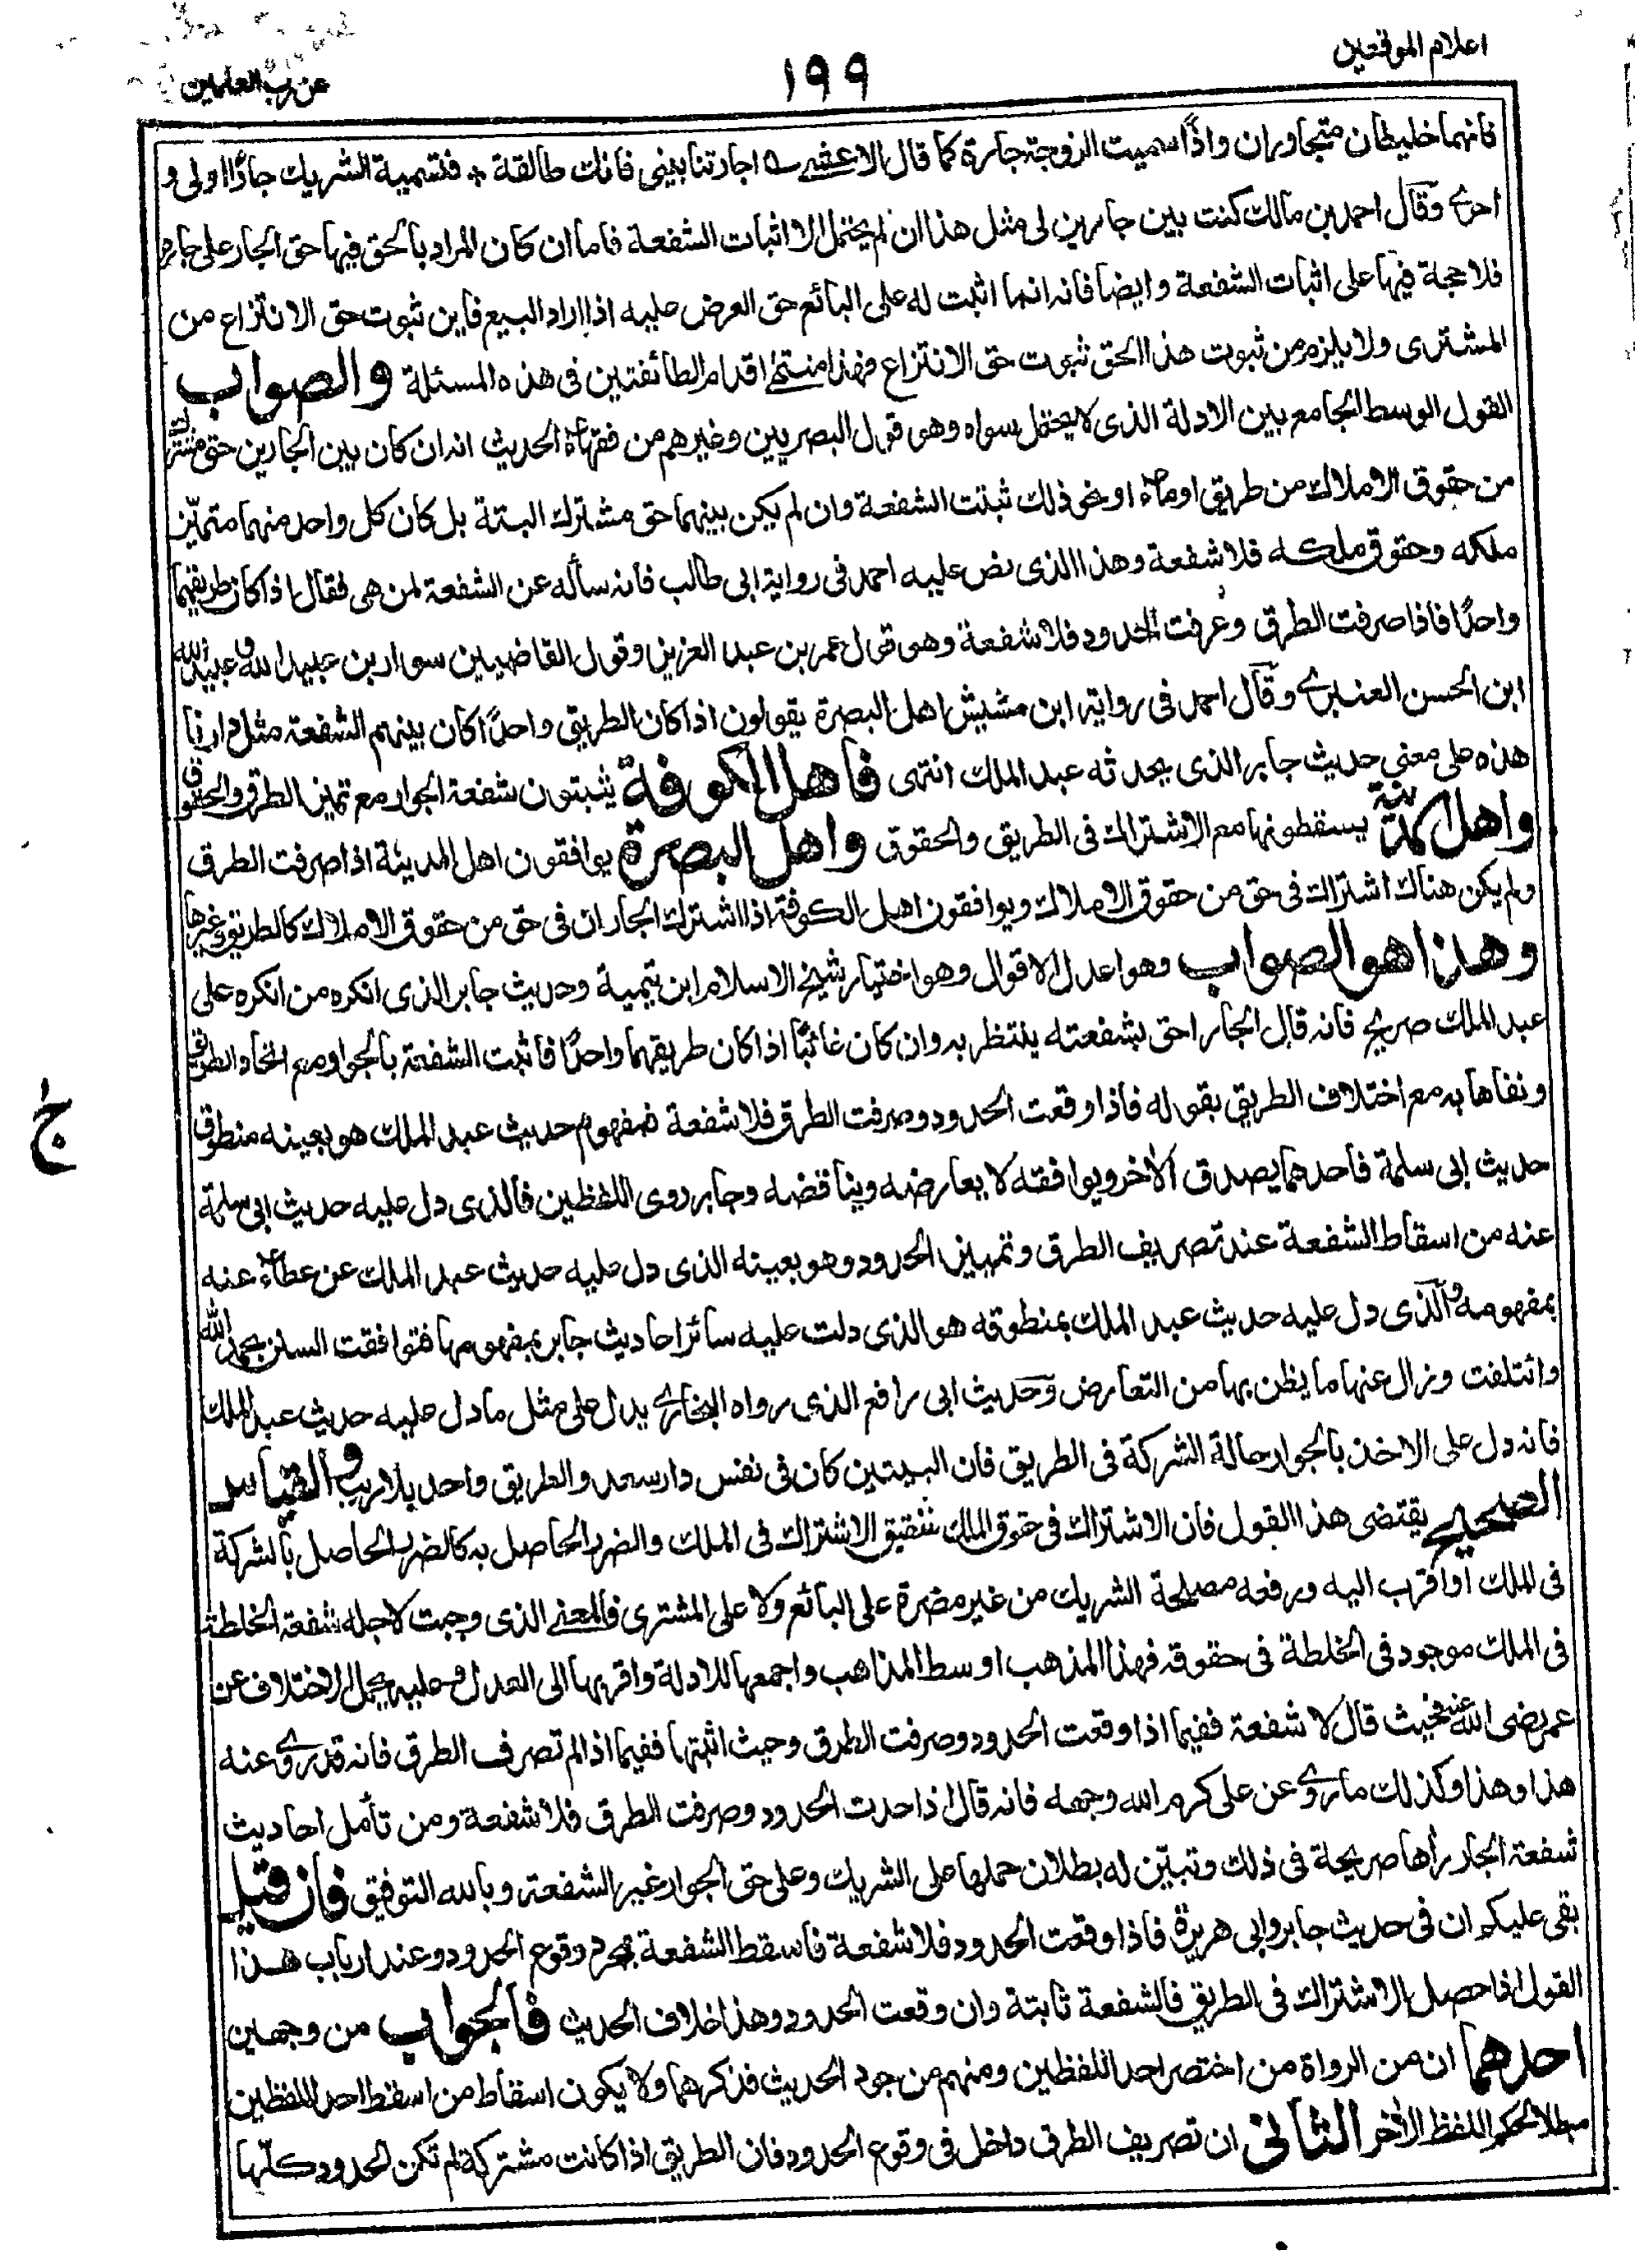 اعلام الموقعين
١٩٩
عن رب العلمين
فانهما خليطان متجاوران واذا سميت الزوجة جارة كما قال الاعشى اجارتنا بيني فانك طالقة * فتسمية الشريك جارا اولى و
احرى وقال احمد بن مالك كنت بين جارين لى مثل هذا ان لم يحتمل الا اثبات الشفعة فاما ان كان المراد بالحق فيها حق الجار على جاره
فلا حجة فيها على اثبات الشفعة وايضا فانه انما اثبت له على البائع حق العرض عليه اذا اراد البيع فاين ثبوت حق الانتزاع من
المشترى ولا يلزم من ثبوت هذا الحق ثبوت حق الانتزاع فهذا منتهى اقدام الطائفتين فى هذه المسئلة والصواب
القول الوسط الجامع بين الادلة الذى لا يحتمل سواه وهو قول البصريين وغيرهم من فقهاء الحديث انه ان كان بين الجارين حق مشترك
من حقوق الاملاك من طريق او ماء او نحو ذلك ثبتت الشفعة وان لم يكن بينهما حق مشترك البتة بل كان كل واحد منهما متميز
ملكه وحقوق ملكه فلا شفعة وهذا الذى نص عليه احمد فى رواية ابى طالب فانه سأله عن الشفعة لمن هى فقال اذا كان طريقهما
واحدًا فاذا صرفت الطرق وعرفت الحدود فلا شفعة وهو قول عمر بن عبد العزيز وقول القاضيين سوار بن عبيد الله وعبيد الله
ابن الحسن العنبرى وقال احمد فى رواية ابن مشيش اهل البصرة يقولون اذا كان الطريق واحدًا كان بينهم الشفعة مثل دارنا
هذه على معنى حديث جابر الذى يحدثه عبد الملك انتهى فاهل الكوفة يثبتون شفعة الجوار مع تميز الطرق والحقوق
واهل المدينة يسقطونها مع الاشتراك فى الطريق والحقوق واهل البصرة يوافقون اهل المدينة اذا صرفت الطرق
ولم يكن هناك اشتراك فى حق من حقوق الاملاك ويوافقون اهل الكوفة اذا اشترك الجاران فى حق من حقوق الاملاك كالطريق وغيرها
وهذا هو الصواب وهو اعدل الاقوال وهو اختيار شيخ الاسلام ابن تيمية وحديث جابر الذى انكره من انكره على
عبد الملك صريح فانه قال الجار احق بشفعته ينتظر به وان كان غائبًا اذا كان طريقهما واحدًا فاثبت الشفعة بالجوار مع اتحاد الطريق
ونفاها به مع اختلاف الطريق بقوله فاذا وقعت الحدود وصرفت الطرق فلا شفعة فمفهوم حديث عبد الملك هو بعينه منطوق
حديث ابى سلمة فاحدهما يصدق الآخر ويوافقه لا يعارضه ويناقضه وجابر روى اللفظين فالذى دل عليه حديث ابى سلمة
عنه من اسقاط الشفعة عند تصريف الطرق وتمييز الحدود وهو بعينه الذى دل عليه حديث عبد الملك عن عطاء عنه
بمفهومه والذى دل عليه حديث عبد الملك بمنطوقه هو الذى دلت عليه سائر احاديث جابر بمفهومها فتوافقت السنن بحمد الله
وائتلفت وزال عنها ما يظن بها من التعارض وحديث ابى رافع الذى رواه البخارى يدل على مثل ما دل عليه حديث عبد الملك
فانه دل على الاخذ بالجوار حالة الشركة فى الطريق فان البيتين كان فى نفس دار سعد والطريق واحد بلا ريب والقياس
الصحيح يقتضى هذا القول فان الاشتراك فى حقوق الملك شقيق الاشتراك فى الملك والضرر الحاصل به كالضرر الحاصل بالشركة
فى الملك او اقرب اليه ورفعه مصلحة الشريك من غير مضرة على البائع ولا على المشترى فالمعنى الذى وجبت لاجله شفعة الخلطة
فى الملك موجود فى الخلطة فى حقوقه فهذا المذهب اوسط المذاهب واجمعها للادلة واقربها الى العدل وعليه يحمل الاختلاف عن
عمر رضى الله عنه فحيث قال لا شفعة ففيما اذا وقعت الحدود وصرفت الطرق وحيث اثبتها ففيما اذا لم تصرف الطرق فانه قد روى عنه
هذا وهذا وكذلك ما روى عن على كرم الله وجهه فانه قال اذا حدت الحدود وصرفت الطرق فلا شفعة ومن تأمل احاديث
شفعة الجار رأها صريحة فى ذلك وتبين له بطلان حملها على الشريك وعلى حق الجوار غير الشفعة وبالله التوفيق فان قيل
بقى عليكم ان فى حديث جابر وابى هريرة فاذا وقعت الحدود فلا شفعة فاسقط الشفعة بمجرد وقوع الحدود وعند ارباب هذا
القول اذا حصل الاشتراك فى الطريق فالشفعة ثابتة وان وقعت الحدود وهذا خلاف الحديث فالجواب من وجهين
احدهما ان من الرواة من اختصر احد اللفظين ومنهم من جود الحديث فذكرهما ولا يكون اسقاط من اسقط احد اللفظين
مبطلا لحكم اللفظ الآخر الثانى ان تصريف الطرق داخل فى وقوع الحدود فان الطريق اذا كانت مشتركة لم تكن الحدود كلها
ج